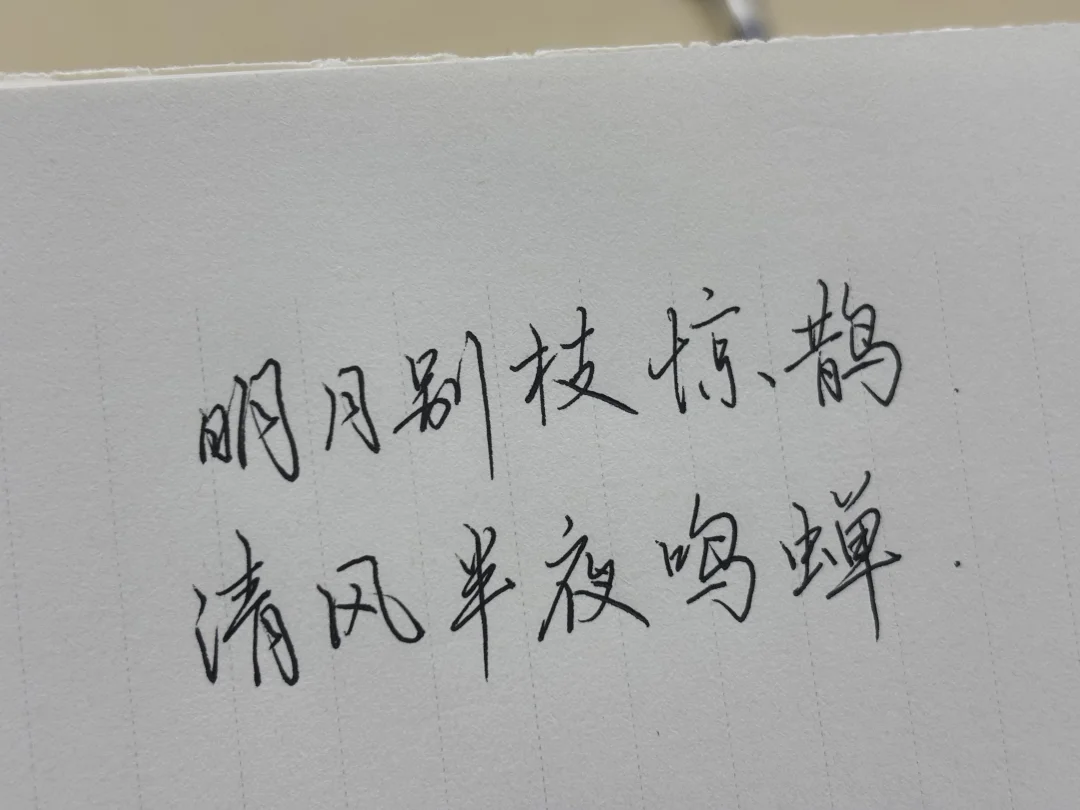 明月别枝惊鹊.
清风半夜鸣蝉.